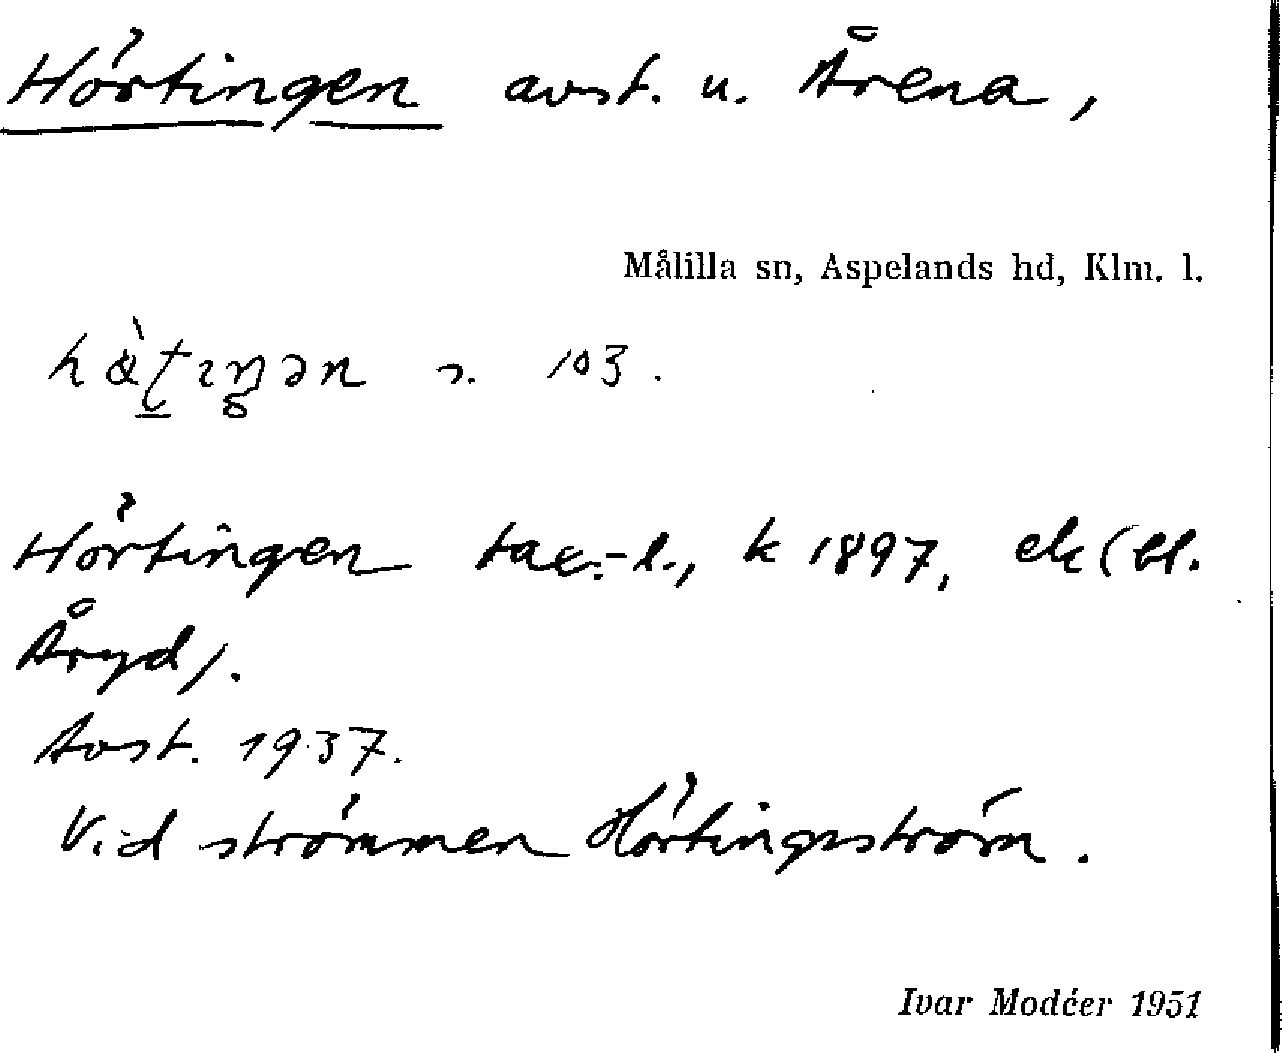 Hörtingen avst. u. Årena,
Målilla sn, Aspelands hd, Klm. l.
ɔ. 103.
Hörtingen tax.-l., k 1897, ek (bl.
Åryd).
Avst. 1937.
Vid strömmen Hörtingsström.
Ivar Modéer 1951